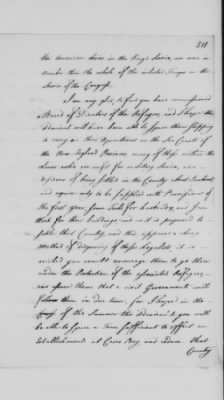 211
the American service in the King's Service, are now in
number than the whole of the enlisted Troops in the
Service of the Congress.
I am very glad, to find you have commissioned
a Board of Directors of the Refugees, and I hope the
Admiral will have been able to spare them shipping
to carry on their Operations on the Sea Coast of
the New England Provinces. many of those within the
lines who are unfit for military Service, are
desirous of being settled in the Country about Penobscot,
and require only to be supplied with Provisions of
the first year, some Tools for husbandry, and Iron
Work for their buildings and as it is proposed to
settle that Country, and this appears a cheap
method of disposing of those Loyalists, it is
wished you would encourage them to go there
under the Protection of the associated Refugees,
and assure them that a civil Government will
follow them in due time, for I hope in the
Course of the Summer the Admiral & you will
be able to spare a Force sufficient to effect an
Establishment at Casco Bay, and reduce that
Country